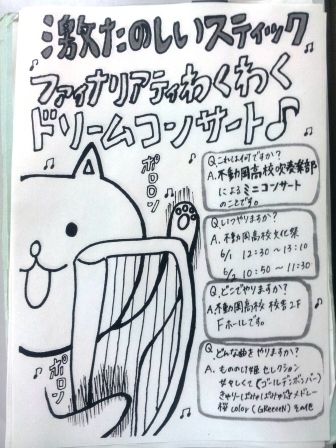 激たのしいスティック
ファイナリアティわくわく
ドリームコンサート♪
ポロロン
ポロン
Q.これは何ですか?
A.不動岡高校吹奏楽部
によるミニコンサート
のことです。
Q.いつやりますか?
A.不動岡高校文化祭
6/1 12:30~13:10
6/2 10:50~11:30
Q.どこでやりますか?
A.不動岡高校 校舎2F
Fホールです。
Q.どんな曲をやりますか?
A.もののけ姫セレクション
女々しくて(ゴールデンボンバー)
きゃりーぱみゅぱみゅメドレー
桜color(GReeeeN)その他